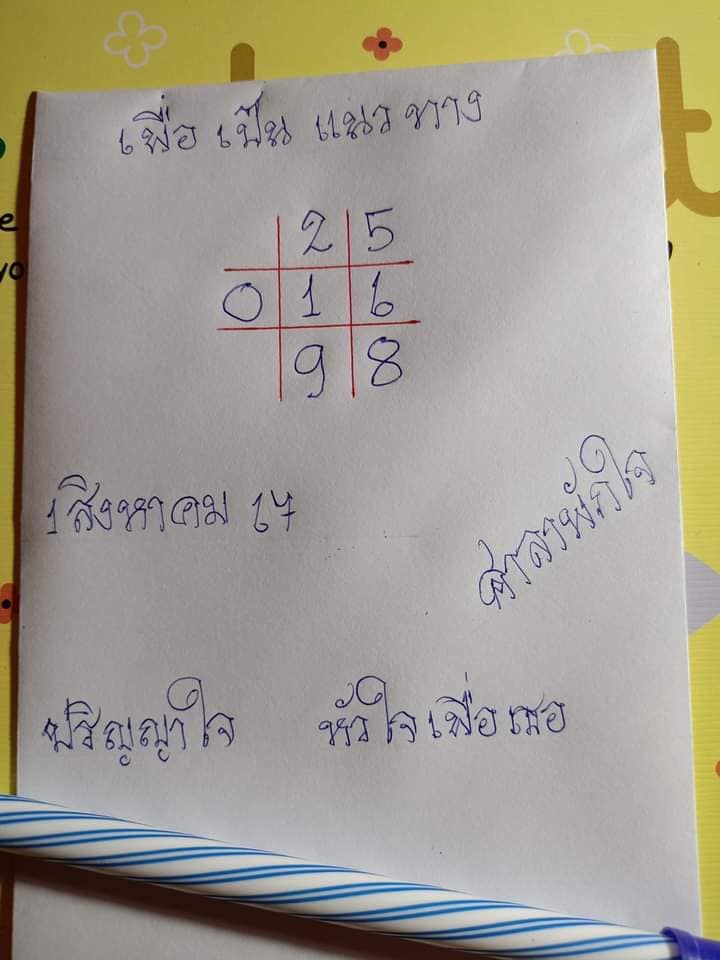 เพื่อ เป็น แนว ทาง
2 5
0 1 6
9 8
1 สิงหาคม 67
ศาลาพักใจ
ปริญญาใจ หัวใจเพื่อเธอ